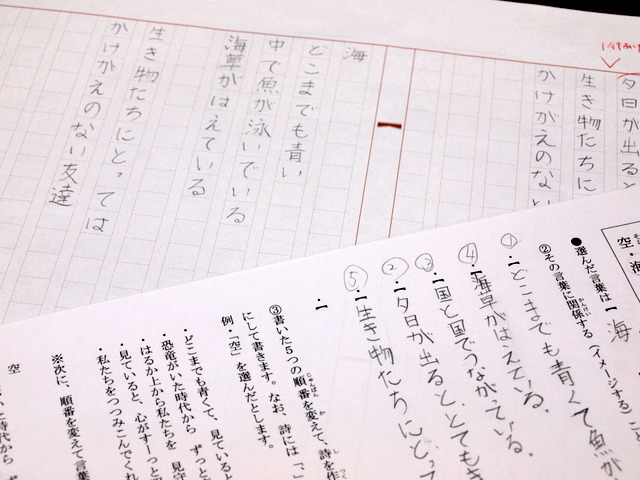 夕日が出ると
生き物たちに
かけがえのない
海
どこまでも青い
中で魚が泳いでいる
海草がはえている
生き物たちにとっては
かけがえのない友達
空・海
●選んだ言葉は【海
②その言葉に関係する(イメージする)こ
①・【どこまでも青くて魚が
④・【海草がはえている。
③・【国と国でつながっている。
②・【夕日が出ると、とてもき
⑤・【生き物たちにとっ
・【
③書いた5つの順番を変えて、詩を作
にして書きます。なお、詩には「、」
例・「空」を選んだとします。
・どこまでも青くて、見ていると
・恐竜がいた時代から ずっと
・はるか上から私たちを 見守
・見ていると、心がすーっと
・私たちをつつみこんでくれ
※次に、順番を変えて言葉
空